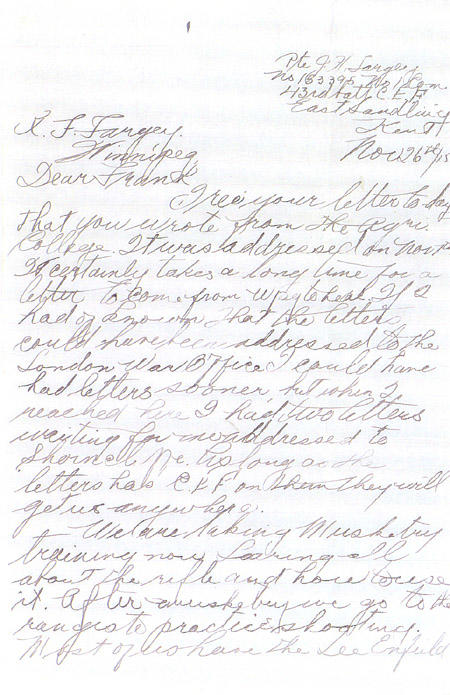 Pte J. H. Fargey
No 183395 No 1 Com
43rd Batt C.E.F
East Sandling
Kent
Nov 26th/15
R. F. Fargey.
Winnipeg
Dear Frank
I rec your letter to-day
that you wrote from the Agri.
College. It was addressed on Nov
It certainly takes a long time for a
letter to come from Wpg to here. If I
had of known that the letters
could have been addressed to the
London War Office I could have
had letters sooner, but when I
reached here I had two letters
waiting for me addressed to
Shorncliffe. As long as the
letters has C.E.F on them they will
get us anywhere.
We are taking Musketry
training now, Learning all
about the rifle and how to use
it. After musketry we go to the
ranges to practice shooting.
Most of us have the Lee Enfield